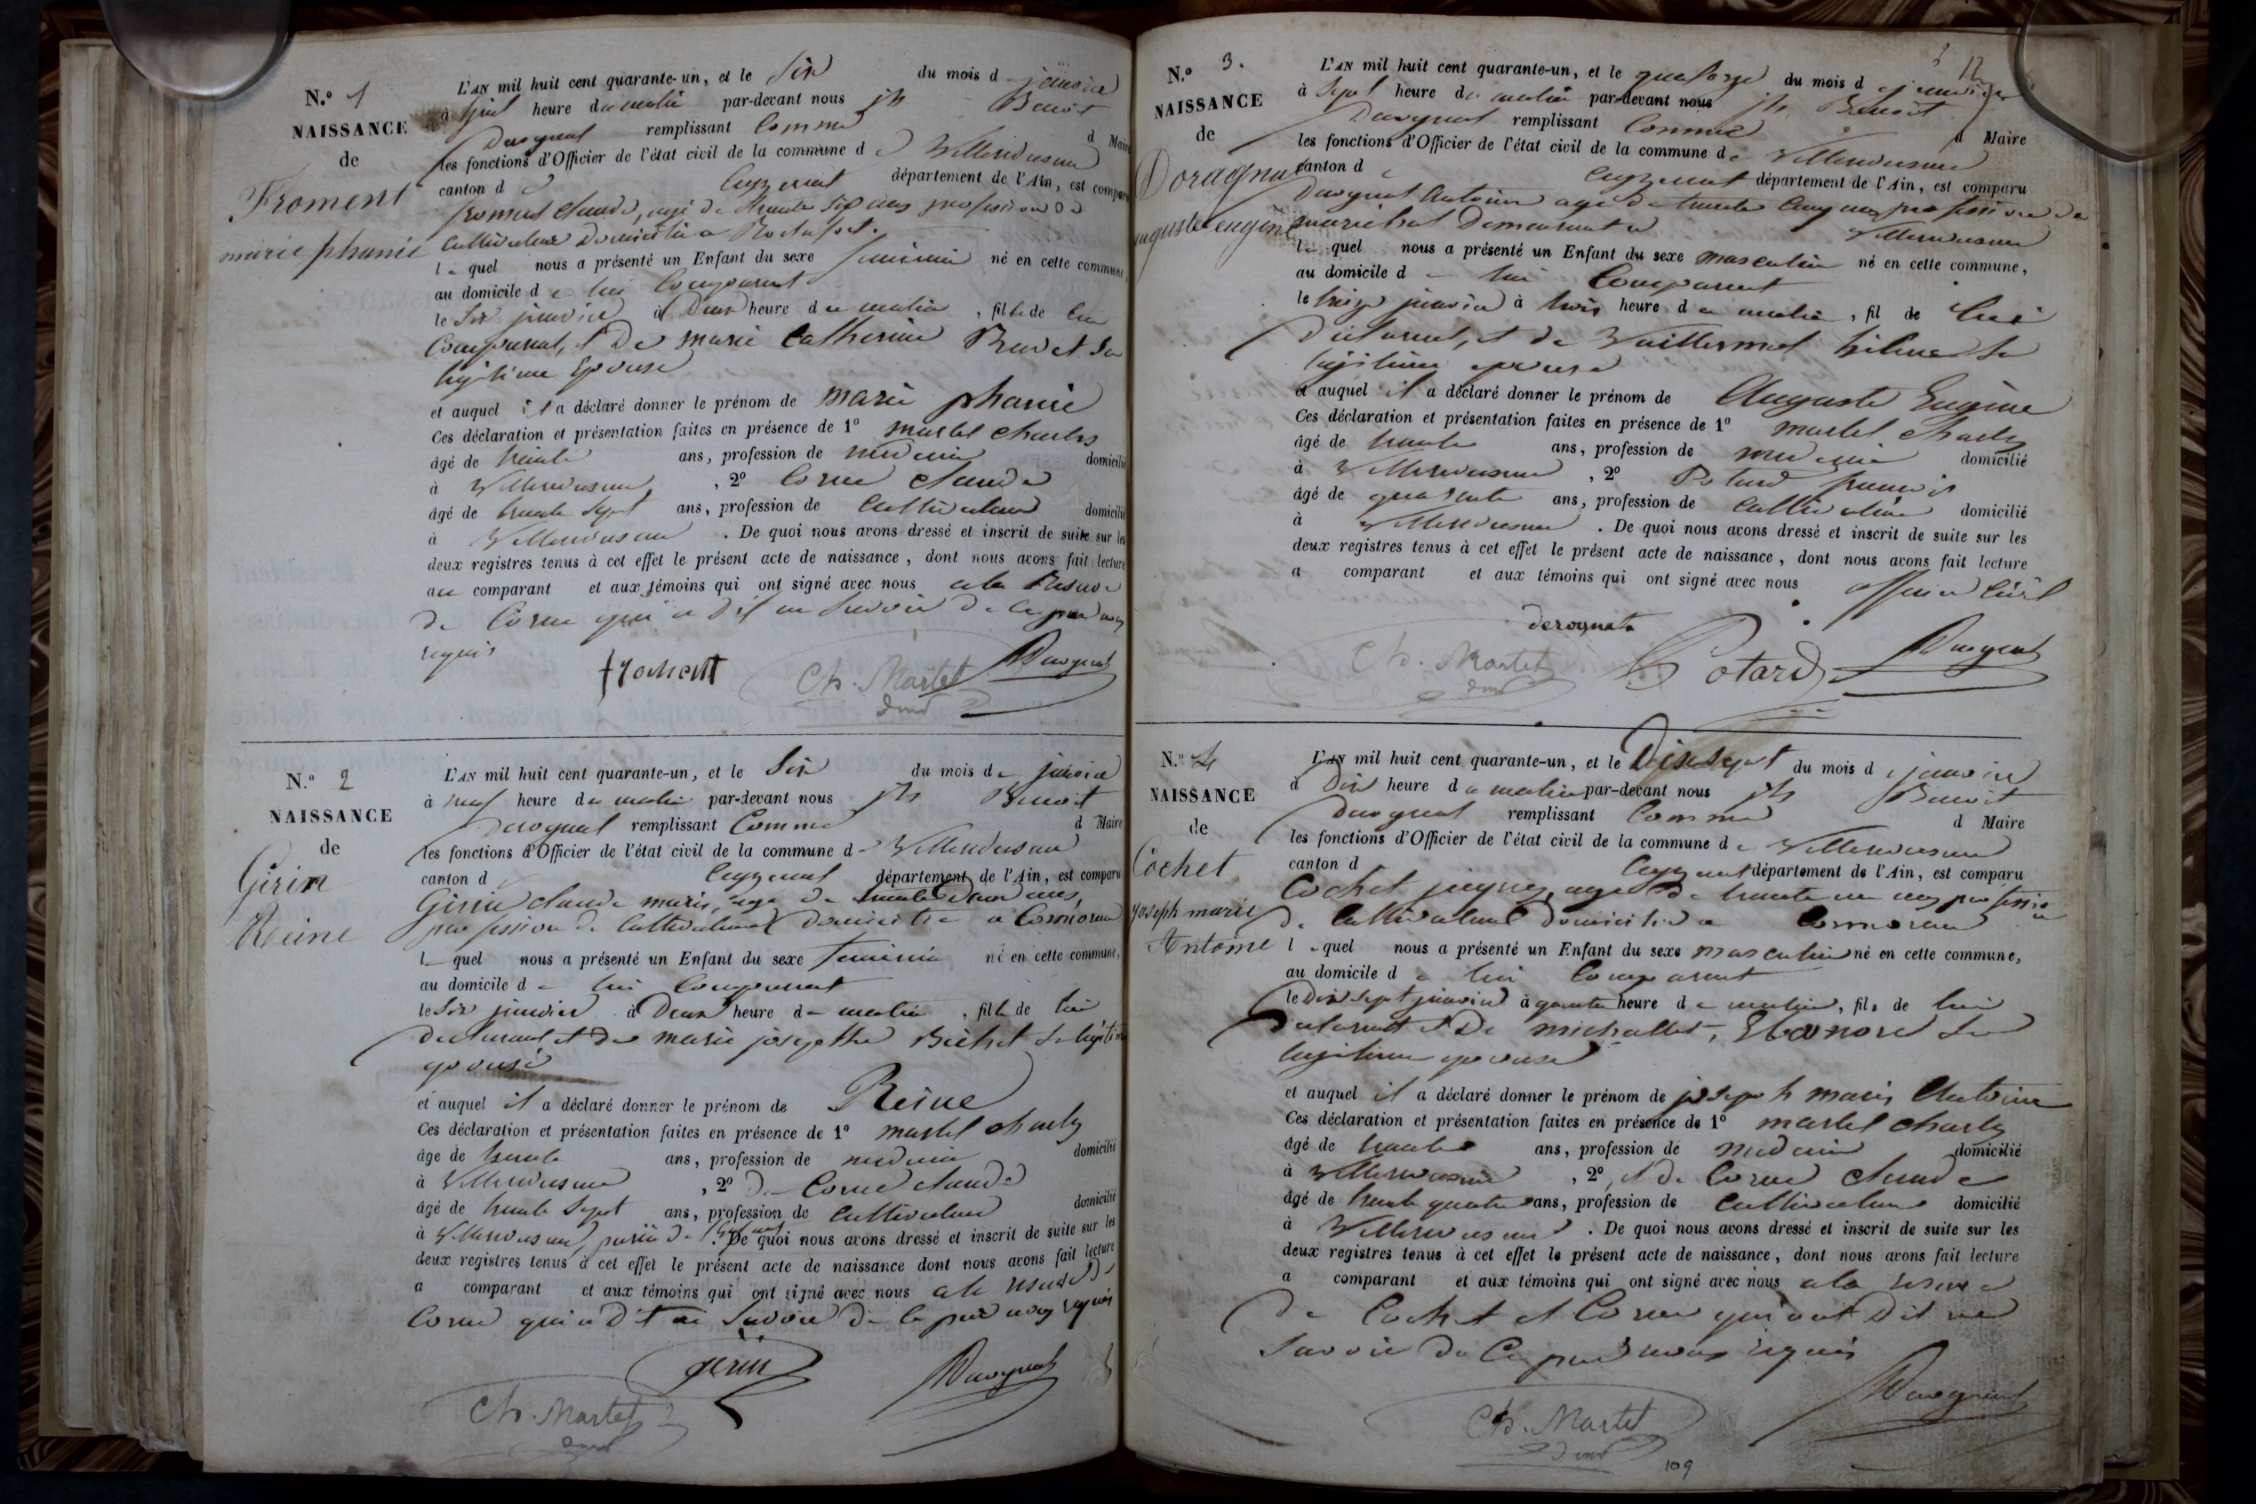 N.º 1
NAISSANCE
de
Froment
marie phanie
L'AN mil huit cent quarante-un, et le Six du mois d janvier
à heure du matin par-devant nous jh Benoit
Derognat remplissant Comme d Maire
les fonctions d'Officier de l'état civil de la commune de Villereversure
canton d Ceyzeriat département de l'Ain, est comparu
froment claude, agé de trente six ans profession de
cultivateur domicilié a Rochefort.
lequel nous a présenté un Enfant du sexe féminin né en cette commune,
au domicile de lui Comparant
le Six janvier à Deux heure du matin, fille de lui
Comparant, et De marie Catherine sa
légitime Epouse
et auquel il a déclaré donner le prénom de marie phanie
Ces déclaration et présentation faites en présence de 1º martel charles
âgé de trente ans, profession de médecin domicilié
à Villereversure, 2º Corne claude
âgé de trente Sept ans, profession de Cultivateur domicilié
à Villereversure. De quoi nous avons dressé et inscrit de suite sur les
deux registres tenus à cet effet le présent acte de naissance, dont nous avons fait lecture
au comparant et aux témoins qui ont signé avec nous a la Reserve
de Corne qui a Dit ne Savoir De ce par nous
requis
froment Ch. Martel Derognat
N.º 2
NAISSANCE
de
Girin
Reine
L'AN mil huit cent quarante-un, et le Six du mois de janvier
à neuf heure du matin par-devant nous jh Benoit
Derognat remplissant Comme d Maire
les fonctions d'Officier de l'état civil de la commune de Villereversure
canton d Ceyzeriat département de l'Ain, est comparu
Girin claude marie, age de trente Deux ans,
profession de Cultivateur domicilié a
lequel nous a présenté un Enfant du sexe feminin né en cette commune,
au domicile de lui Comparant
le Six janvier à Deux heure du matin, fille de lui
declarant et de marie josephte Bichet sa légitime
epouse
et auquel il a déclaré donner le prénom de Reine
Ces déclaration et présentation faites en présence de 1º martel charles
âge de trente ans, profession de médecin domicilié
à Villereversure, 2º De Corne claude
âgé de trente Sept ans, profession de cultivateur domicilié
à Villereversure, De quoi nous avons dressé et inscrit de suite sur les
deux registres tenus à cet effet le présent acte de naissance dont nous avons fait lecture
a comparant et aux témoins qui ont signé avec nous a la reserve De
Corne qui a Dit ne Savoir De ce par nous requis
girin Derognat
Ch. Martel
N.º 3.
NAISSANCE
de
Doragnat
auguste eugène
L'AN mil huit cent quarante-un, et le quatorze du mois de janvier
à Sept heure du matin par-devant nous jh Benoit
Derognat remplissant Comme d Maire
les fonctions d'Officier de l'état civil de la commune de Villereversure
canton de Ceyzeriat département de l'Ain, est comparu
Derognat Antoine agé de trente cinq ans profession de
maréchal Demeurant a Villereversure
lequel nous a présenté un Enfant du sexe masculin né en cette commune,
au domicile de lui Comparant
le treize janvier à trois heure du matin, fil de lui
Déclarant, et de Vuillermet sa
légitime epouse
et auquel il a déclaré donner le prénom de Auguste Eugène
Ces déclaration et présentation faites en présence de 1º martel charles
âgé de trente ans, profession de médecin domicilié
à Villereversure, 2º Potard françois
âgé de quarante ans, profession de Cultivateur domicilié
à Villereversure. De quoi nous avons dressé et inscrit de suite sur les
deux registres tenus à cet effet le présent acte de naissance, dont nous avons fait lecture
a comparant et aux témoins qui ont signé avec nous officier Civil
derognat
Ch. Martel Potard Derognat
N.º 4
NAISSANCE
de
Cochet
Joseph marie
Antoine
L'AN mil huit cent quarante-un, et le Dix Sept du mois de janvier
à Dix heure du matin par-devant nous jh Benoit
Derognat remplissant Comme d Maire
les fonctions d'Officier de l'état civil de la commune de Villereversure
canton d Ceyzeriat département de l'Ain, est comparu
Cochet jacques, agé de trente un ans profession
de Cultivateur domicilié a
lequel nous a présenté un Enfant du sexe masculin né en cette commune,
au domicile de lui Comparant
le Dix Sept janvier à quatre heure du matin, fils de lui
Declarant et De michallet, Eléonore sa
légitime epouse
et auquel il a déclaré donner le prénom de joseph marie Antoine
Ces déclaration et présentation faites en présence de 1º martel charles
âgé de trente ans, profession de médecin domicilié
à Villereversure, 2º, et De Corne Claude
âgé de trente quatre ans, profession de cultivateur domicilié
à Villereversure. De quoi nous avons dressé et inscrit de suite sur les
deux registres tenus à cet effet le présent acte de naissance, dont nous avons fait lecture
a comparant et aux témoins qui ont signé avec nous a la reserve
De Cochet et Corne qui ont Dit ne
Savoir De Ce par nous requis
Derognat
Ch. Martel
109